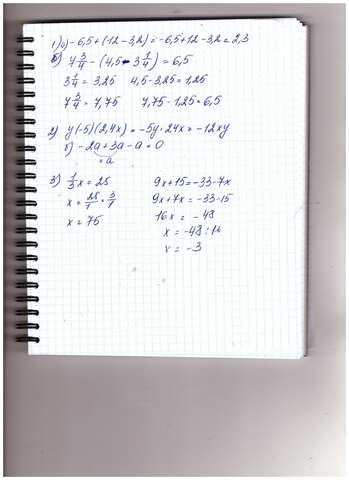 1) а) -6,5+(-12-3,2)=-6,5+12-3,2=2,3
б) 4 3/4 - (4,5-3 1/4)=6,5
3 1/4 = 3,25 4,5-3,25=1,25
7 3/4 = 7,75 7,75-1,25=6,5
2) y(-5)(2,4x)=-5y·24x=-12xy
б) -2a+3a-a=0
+a
3) 1/3 x=25
x = 25/1 · 3/1
x = 75
9x+15=-33-7x
9x+7x=-33-15
16x = -48
x = -48:16
x = -3